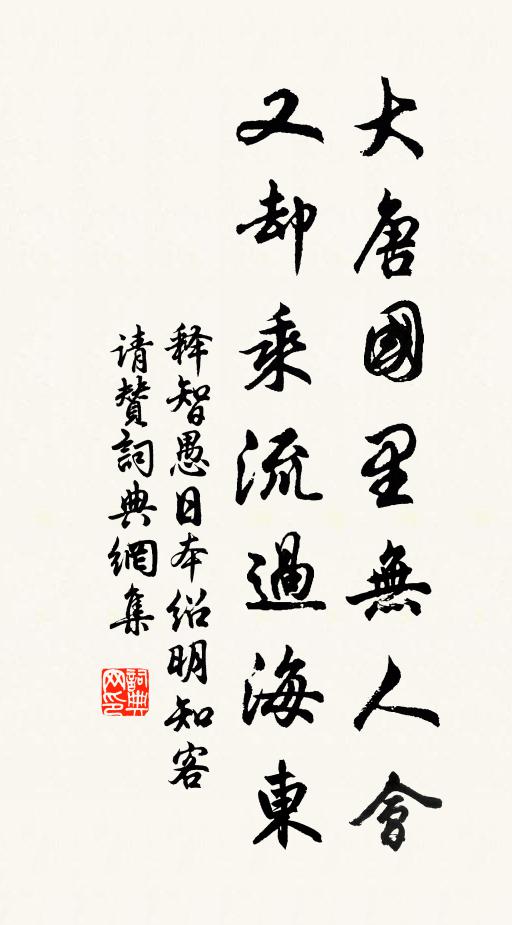 大唐國里無人會
又却乘流過海東
释智愚日本绍明知客
请贊詞典網集
詞典网印